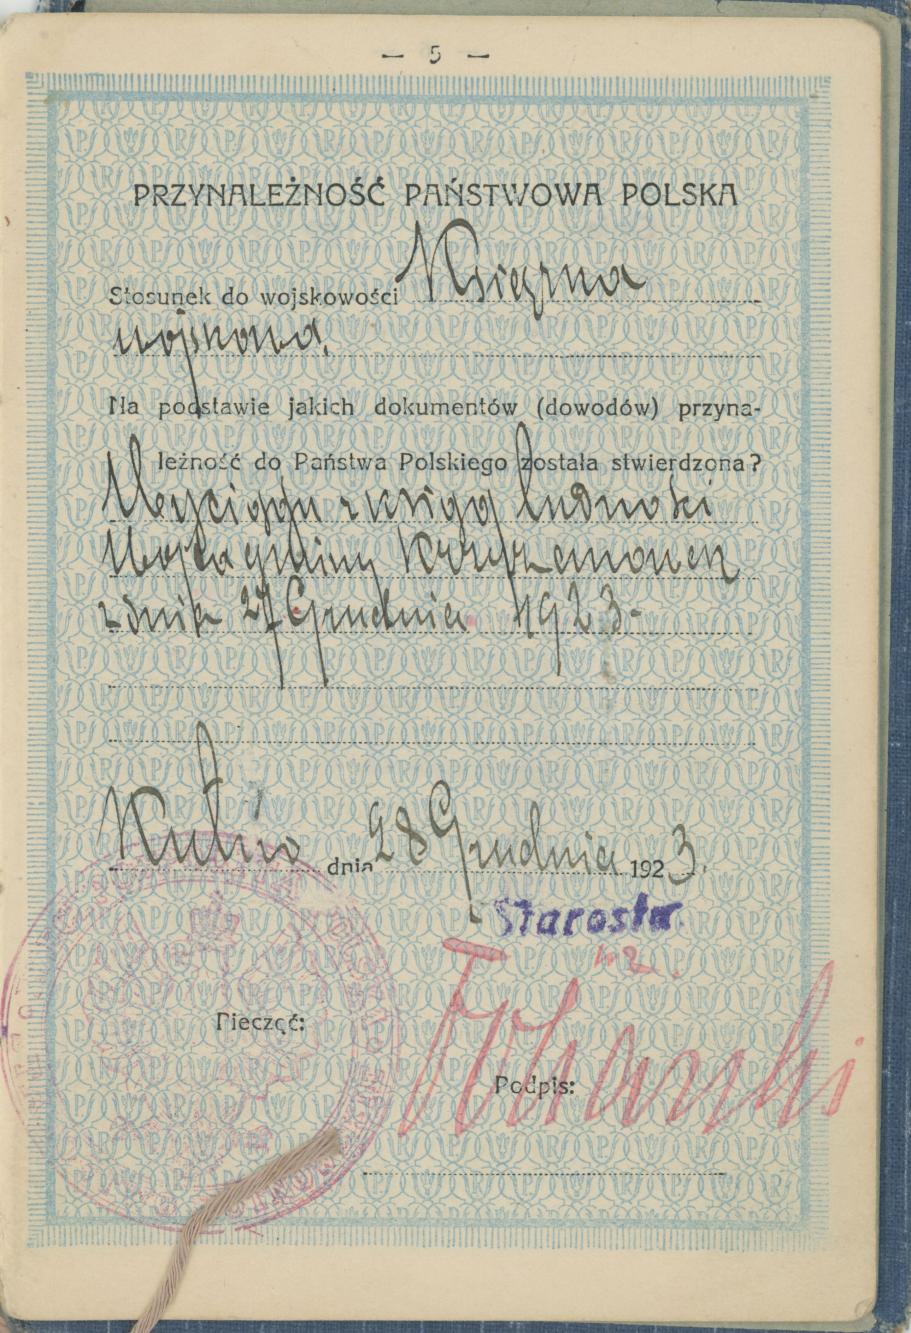 — 5 —
PRZYNALEŻNOŚĆ PAŃSTWOWA POLSKA
Stosunek do wojskowości Książka
wojskowa.
Na podstawie jakich dokumentów (dowodów) przyna-
leżność do Państwa Polskiego została stwierdzona?
Wyciągu z księgi ludności
Wójta gminy Krzyżanówek
z dnia 27 Grudnia 1923 -
Kutno dnia 28 Grudnia 1923.
Starosta
wz.
Pieczęć:
Podpis: